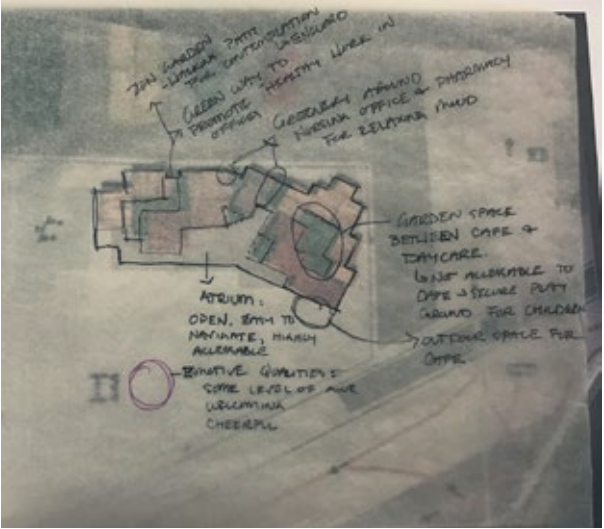 ZEN GARDEN
-WALKING PATH
FOR CONTEMPLATION
GREEN WAY TO
PROMOTE HEALTHY WORK IN
OFFICES
GREENERY AROUND
NURSING OFFICE & PHARMACY
FOR RELAXING MOOD
GARDEN SPACE
BETWEEN CAFE &
DAYCARE.
NOT ACCESSIBLE TO
CAFE → SECURE PLAY
GROUND FOR CHILDREN
OUTDOOR SPACE FOR
CAFE
ATRIUM:
OPEN, EASY TO
NAVIGATE, HIGHLY
EMOTIVE QUALITIES:
SOME LEVEL OF AWE
WELCOMING
CHEERFUL